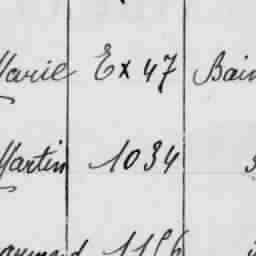 Marie Ex 47 Bain
Martin 1034
1156